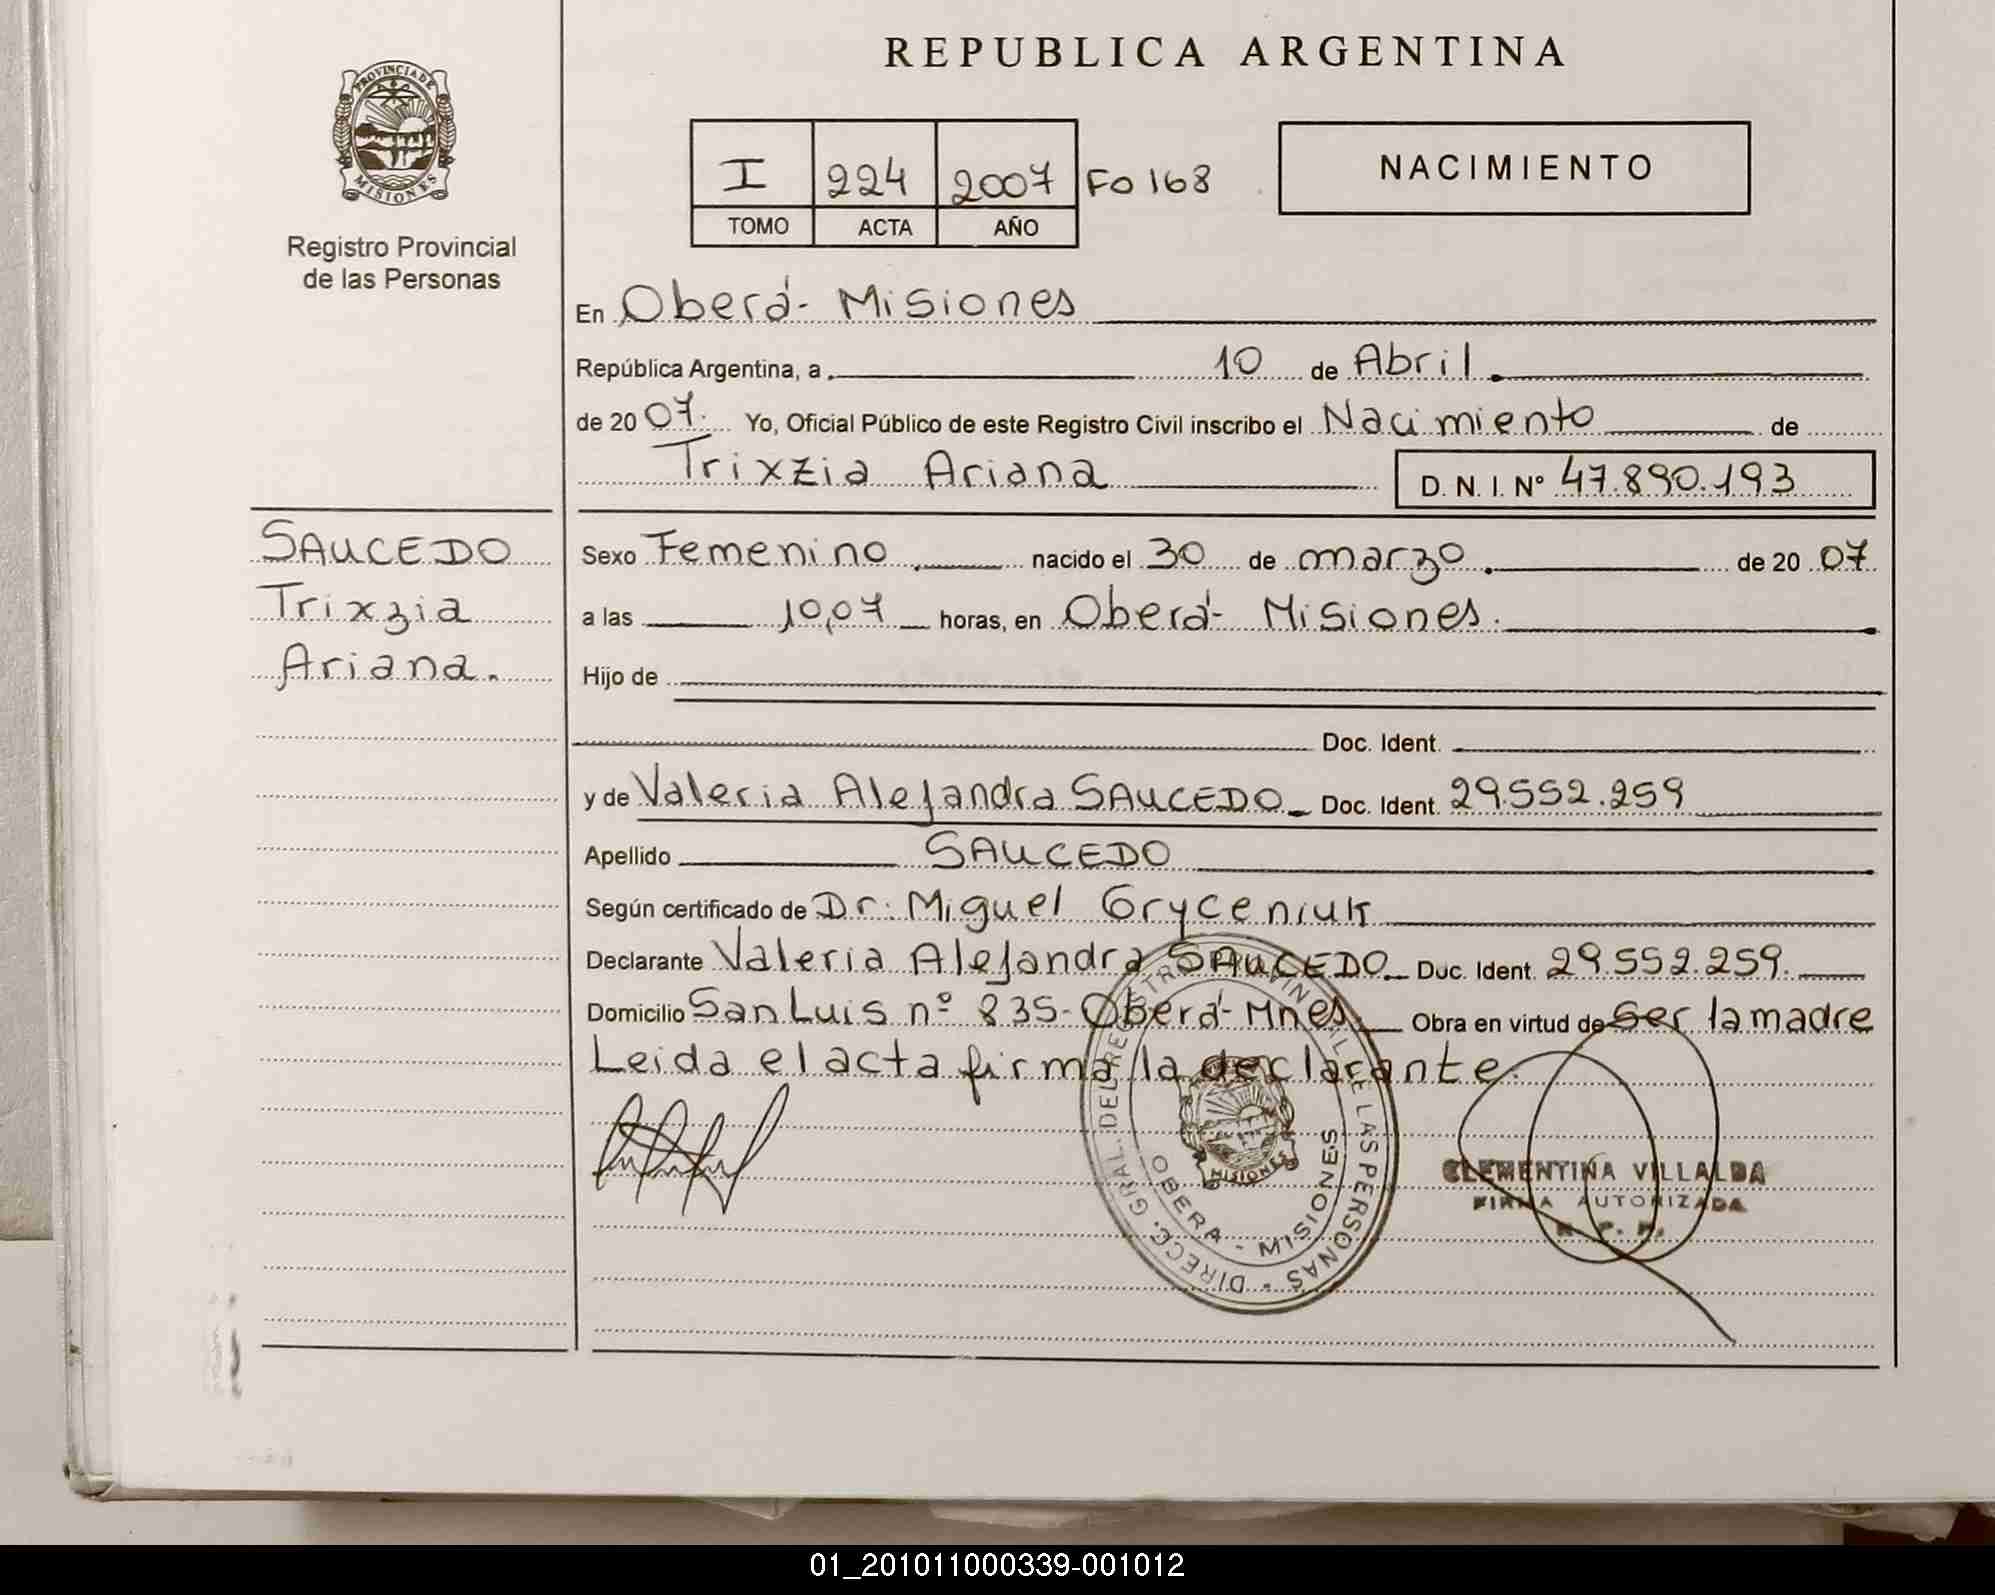 REPUBLICA ARGENTINA
PROVINCIA DE
MISIONES
Registro Provincial
de las Personas
I 224 2007 Fo 168
TOMO ACTA AÑO
NACIMIENTO
En Oberá- Misiones
República Argentina, a 10 de Abril
de 2007. Yo, Oficial Público de este Registro Civil inscribo el Nacimiento de
Trixzia Ariana D. N. I. Nº 47.890.193
SAUCEDO
Trixzia
Ariana.
Sexo Femenino nacido el 30 de marzo de 2007
a las 10,07 horas, en Oberá- Misiones.
Hijo de
Doc. Ident.
y de Valeria Alejandra SAUCEDO Doc. Ident. 29.552.259
Apellido SAUCEDO
Según certificado de Dr. Miguel Gryceniuk
Declarante Valeria Alejandra SAUCEDO Doc. Ident. 29.552.259.
Domicilio San Luis nº 835- Oberá- Mnes. Obra en virtud de ser la madre
Leida el acta firma la declarante.
DIRECC. GRAL. DEL REGISTRO PROVINCIAL DE LAS PERSONAS
MISIONES
OBERA - MISIONES
CLEMENTINA VILLALBA
FIRMA AUTORIZADA
R. P. P.
01_201011000339-001012